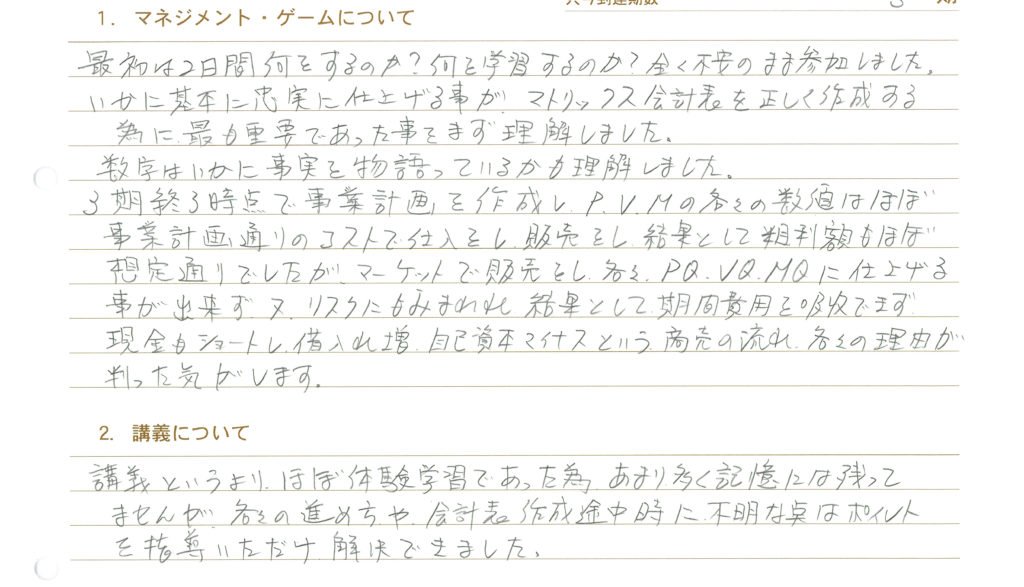 尺今到達期数 3 期
1. マネジメント・ゲームについて
最初は2日間何をするのか?何を学習するのか?全く不安のまま参加しました。
いかに基本に忠実に仕上げる事が、マトリックス会計表を正しく作成する
為に、最も重要であった事をまず理解しました。
数字はいかに事実を物語っているかも理解しました。
3期終3時点で事業計画を作成し、P.V.Mの各々の数値はほぼ
事業計画通りのコストで仕入をし、販売をし、結果として粗利額もほぼ
想定通りでしたが、マーケットで販売をし、各々、PQ.VQ.MQに仕上げる
事が出来ず、又、リスクにもみまわれ、結果として、期間費用を吸収できず、
現金もショートし、借入れ増、自己資本マイナスという、商売の流れ、各々の理由が
判った気がします。
2. 講義について
講義というより、ほぼ体験学習であった為、あまり多く記憶には残って
ませんが、各々の進め方や、会計表作成途中時に、不明な点はポイント
を指導いただけ解決できました。